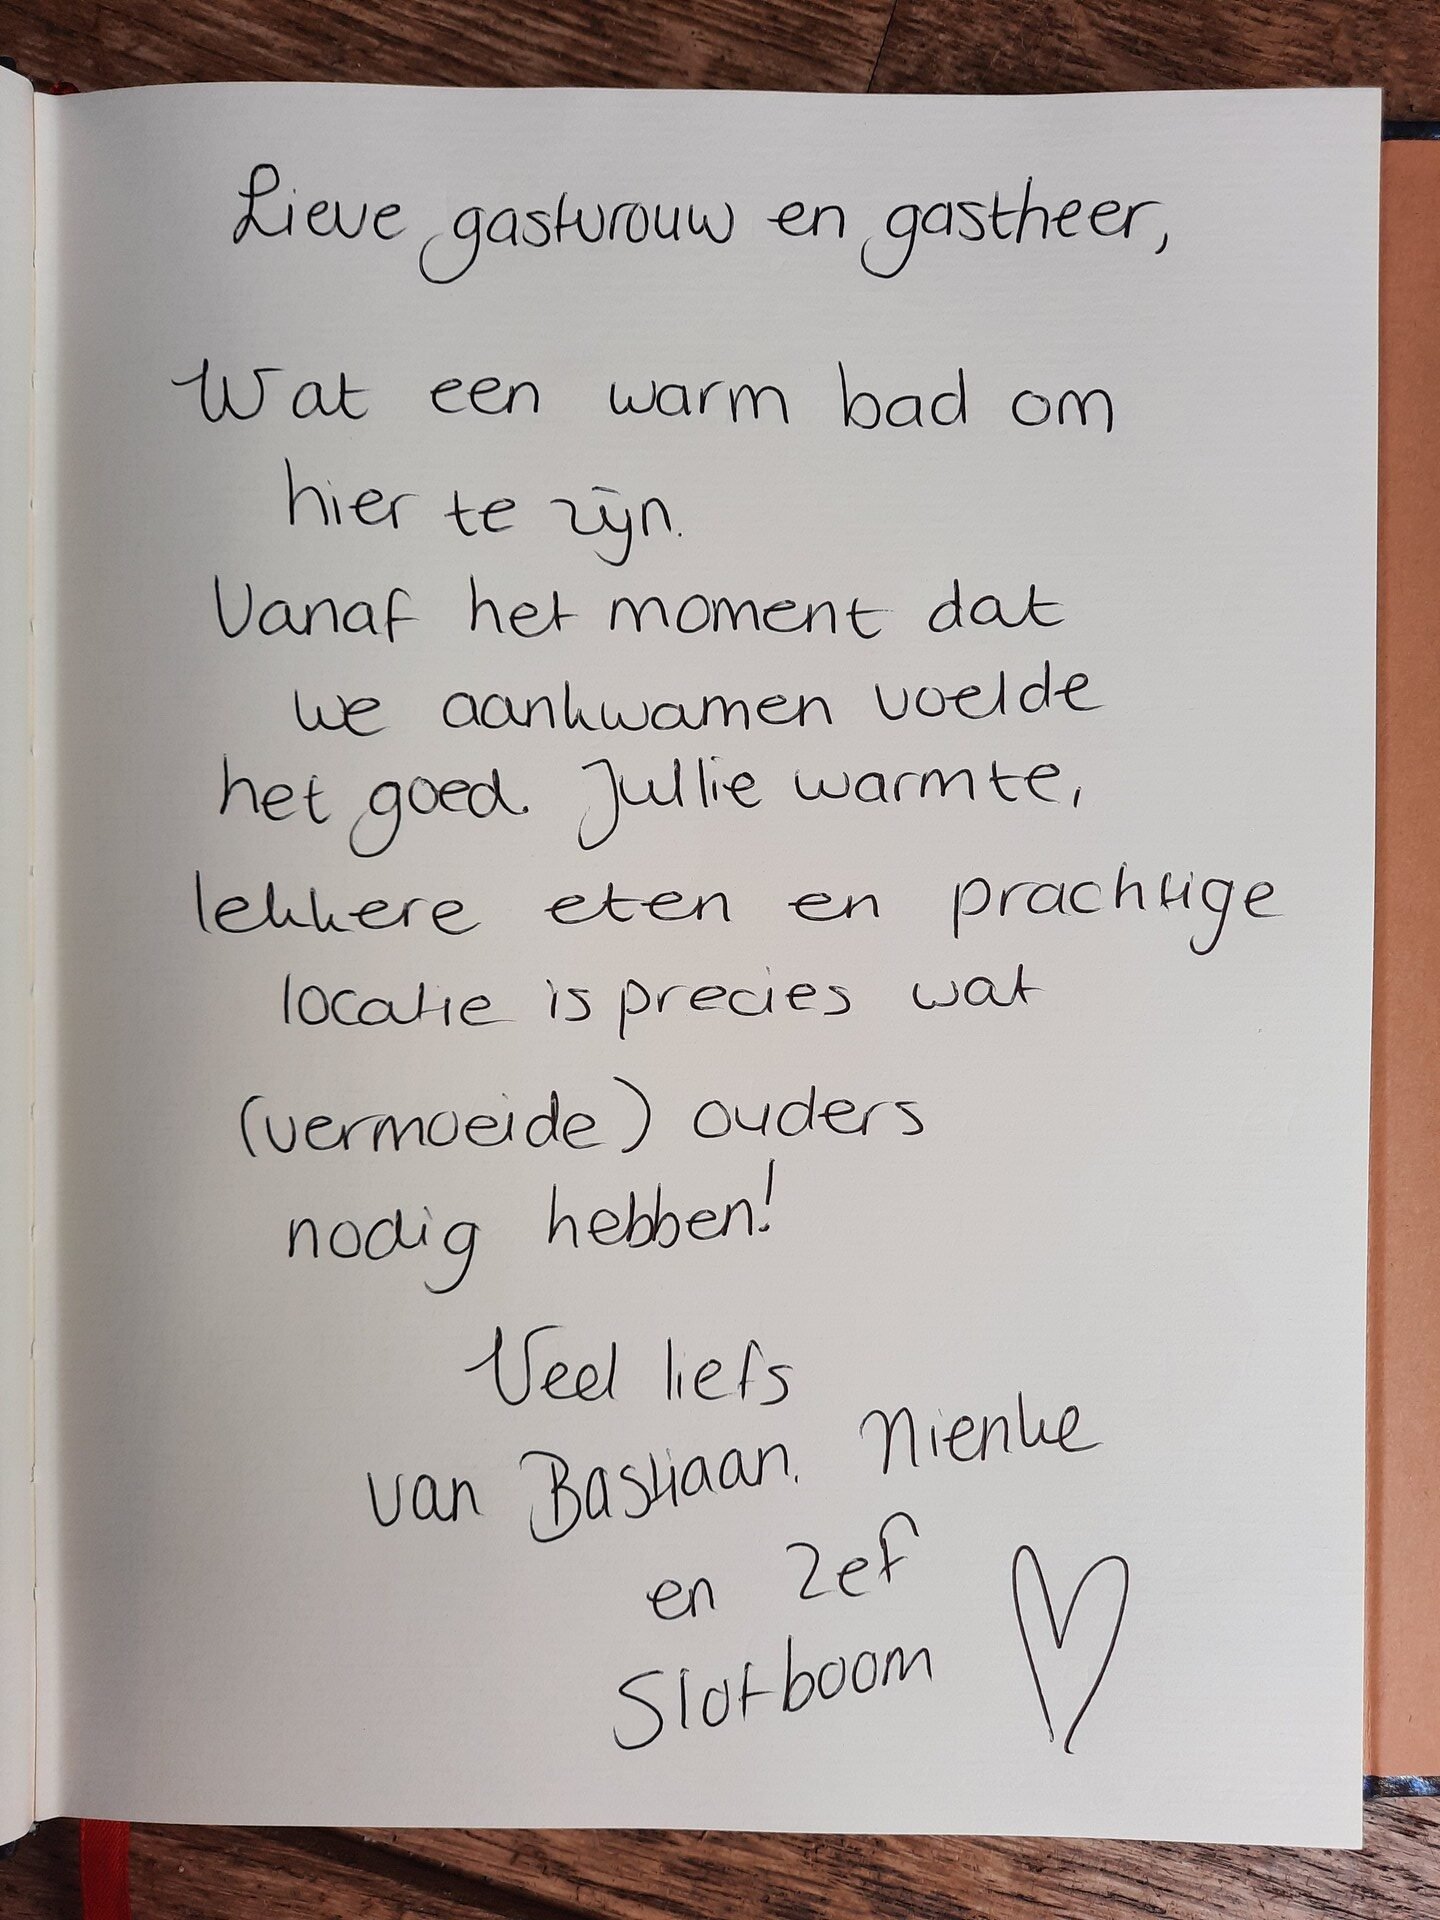 Lieve gastvrouw en gastheer,
Wat een warm bad om
hier te zijn.
Vanaf het moment dat
we aankwamen voelde
het goed. Jullie warmte,
lekkere eten en prachtige
locatie is precies wat
(vermoeide) ouders
nodig hebben!
Veel liefs
van Bastiaan, Nienke
en Zef
Slotboom